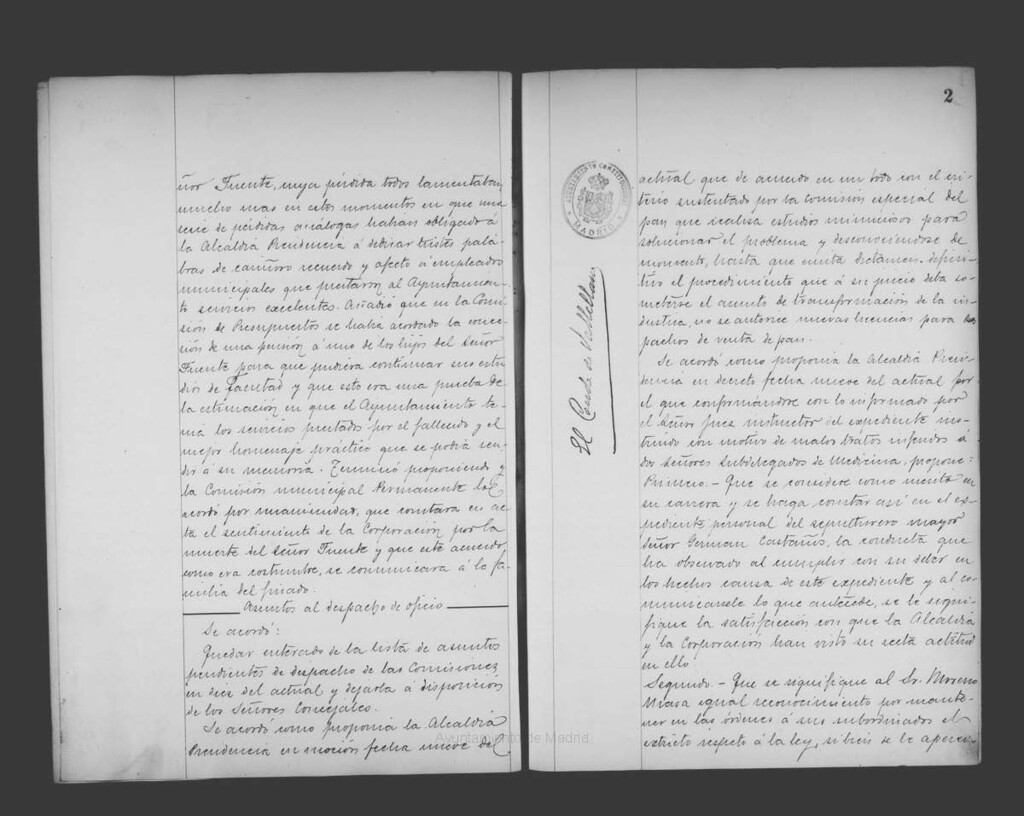 ñor Fuente, cuya pérdida todos lamentaban,
mucho mas en estos momentos en que una
serie de pérdidas análogas habian obligado á
la Alcaldia Presidencia á dedicar tristes pala-
bras de cariñoso recuerdo y afecto á empleados
municipales que prestaron al Ayuntamien-
to servicios excelentes. Añadió que en la Comi-
sión de Presupuestos se habia acordado la conce-
sión de una pensión á uno de los hijos del Señor
Fuente para que pudiera continuar sus estu-
dios de Facultad y que esto era una prueba de
la estimación en que el Ayuntamiento te-
nia los servicios prestados por el fallecido y el
mejor homenaje práctico que se podia ren-
dir á su memoria. Terminó proponiendo y
la Comisión municipal Permanente lo
acordó por unanimidad, que constara en ac-
ta el sentimiento de la Corporación por la
muerte del Señor Fuente y que este acuerdo,
como era costumbre, se comunicara á la fa-
milia del finado.
Asuntos al despacho de oficio
Se acordó:
Quedar enterado de la lista de asuntos
pendientes de despacho de las Comisiones
en diez del actual y dejarla á disposición
de los Señores Concejales.
Se acordó como proponia la Alcaldia
Presidencia en moción fecha nueve del
2
AYUNTAMIENTO CONSTITUCIONAL
MADRID
El Conde de Vallellano
actual que de acuerdo en un todo con el cri-
terio sustentado por la Comisión especial del
pan que realiza estudios minuciosos para
solucionar el problema y desconociéndose de
momento, hasta que emita dictamen defini-
tivo el procedimiento que á su juicio deba so-
meterse el asunto de transformación de la in-
dustria, no se autorice nuevas licencias para des-
pachos de venta de pan.
Se acordó como proponia la Alcaldia Presi-
dencia en decreto fecha nueve del actual por
el que conformándose con lo informado por
el Señor Juez instructor del expediente ins-
truido con motivo de malos tratos inferidos á
dos Señores Subdelegados de Medicina, propone:
Primero.- Que se considere como mérito en
su carrera y se haga constar asi en el ex-
pediente personal del sepulturero mayor
Señor German Castaños, la conducta que
ha observado al cumplir con su deber en
los hechos causa de este expediente y al co-
municarsele lo que antecede, se le signi-
fique la satisfacción con que la Alcaldia
y la Corporación han visto su recta actitud
en ello
Segundo.- Que se signifique al Sr. Moreno
igual reconocimiento por mante-
ner en las órdenes á sus subordinados el
estricto respeto á la ley, si bien se le aperci-
Ayuntamiento de Madrid